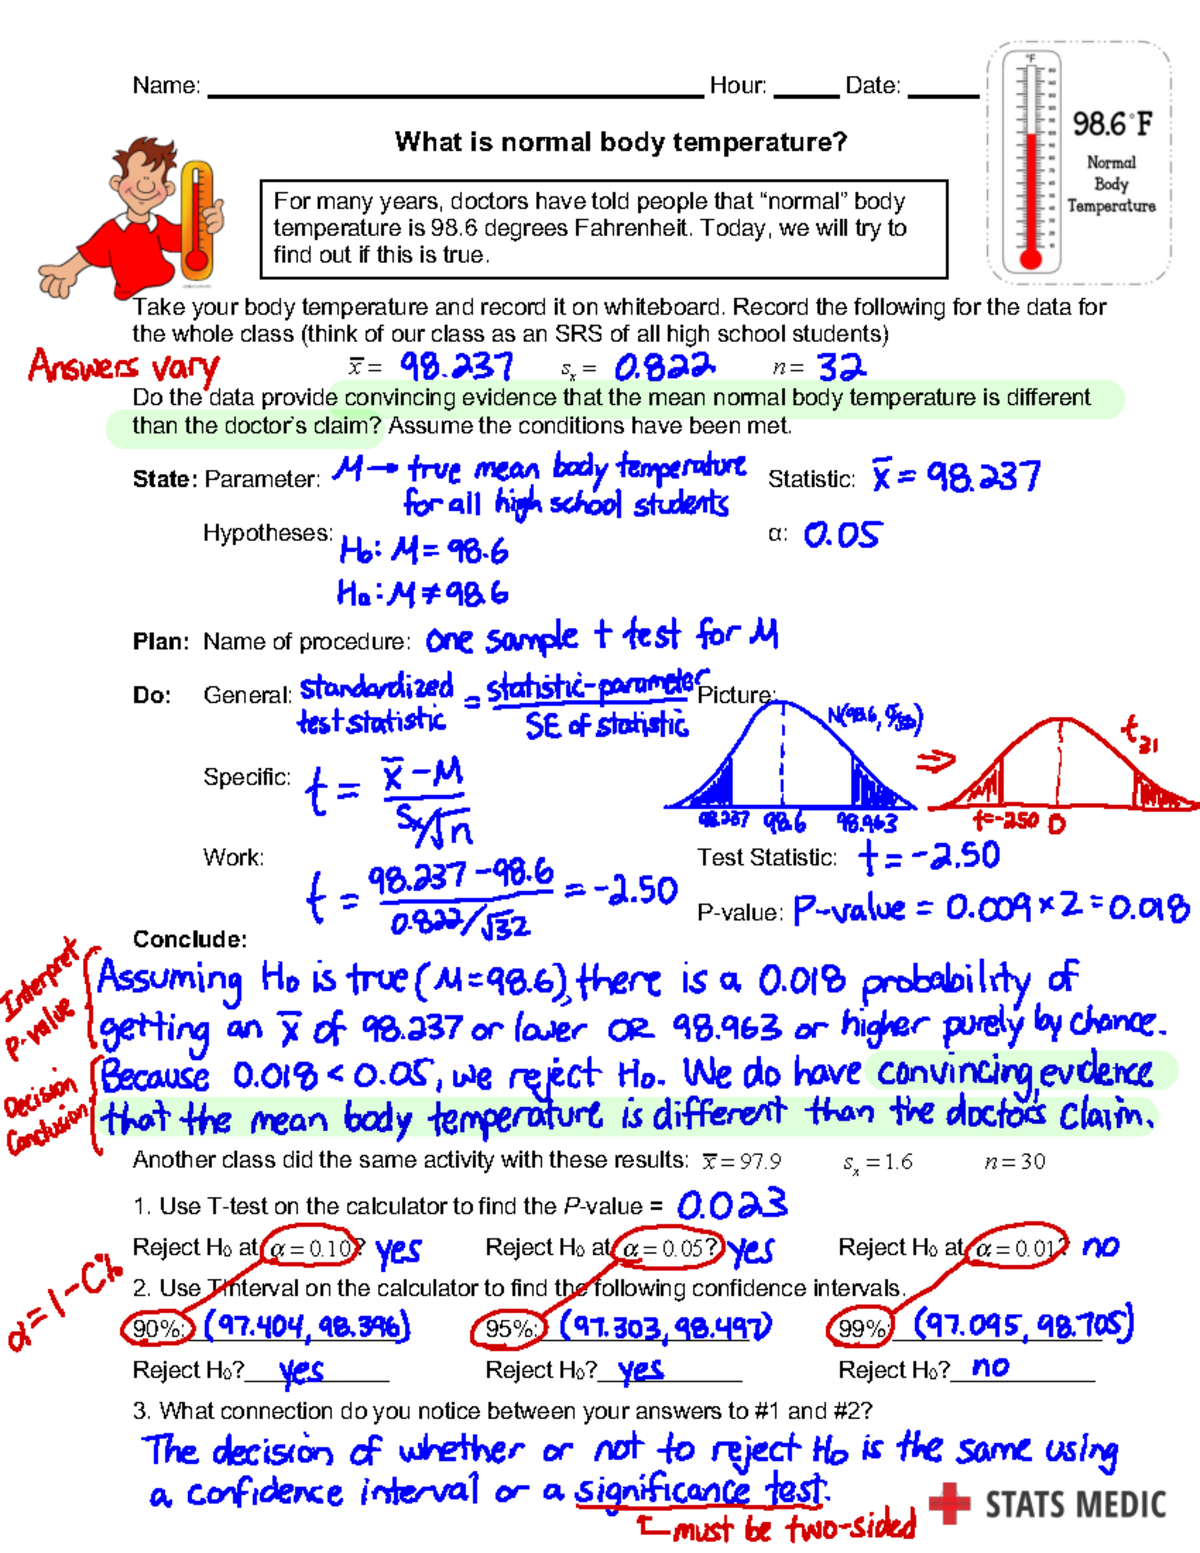 Name: ____ Hour: ____ Date: ____
°F
98.6°F
Normal
Body
Temperature
What is normal body temperature?
For many years, doctors have told people that “normal” body
temperature is 98.6 degrees Fahrenheit. Today, we will try to
find out if this is true.
Take your body temperature and record it on whiteboard. Record the following for the data for
the whole class (think of our class as an SRS of all high school students)
Answers vary x̄ = 98.237 sₓ = 0.822 n = 32
Do the data provide convincing evidence that the mean normal body temperature is different
than the doctor’s claim? Assume the conditions have been met.
State: Parameter: M → true mean body temperature Statistic: x̄ = 98.237
for all high school students
Hypotheses: H₀: M = 98.6 α: 0.05
Ha: M ≠ 98.6
Plan: Name of procedure: One sample t test for M
Do: General: standardized test statistic = statistic - parameter / SE of statistic Picture:
N(98.6, σ/√32) ⇒ t₃₁
98.237 98.6 98.963 t=-2.50 0
Specific: t = x̄ - M / Sx/√n
Work: t = 98.237 - 98.6 / 0.822/√32 = -2.50
Test Statistic: t = -2.50
P-value: P-value = 0.009 × 2 = 0.018
Conclude:
Interpret P-value
Assuming H₀ is true (M=98.6), there is a 0.018 probability of
getting an x̄ of 98.237 or lower OR 98.963 or higher purely by chance.
Decision Conclusion
Because 0.018 < 0.05, we reject H₀. We do have convincing evidence
that the mean body temperature is different than the doctor's claim.
Another class did the same activity with these results: x̄ = 97.9 sₓ = 1.6 n = 30
1. Use T-test on the calculator to find the P-value = 0.023
Reject H₀ at α = 0.10? yes Reject H₀ at α = 0.05? yes Reject H₀ at α = 0.01? no
α = 1 - C%
2. Use TInterval on the calculator to find the following confidence intervals.
90%: (97.404, 98.396) 95%: (97.303, 98.497) 99%: (97.095, 98.705)
Reject H₀? yes Reject H₀? yes Reject H₀? no
3. What connection do you notice between your answers to #1 and #2?
The decision of whether or not to reject H₀ is the same using
a confidence interval or a significance test.
must be two-sided
STATS MEDIC